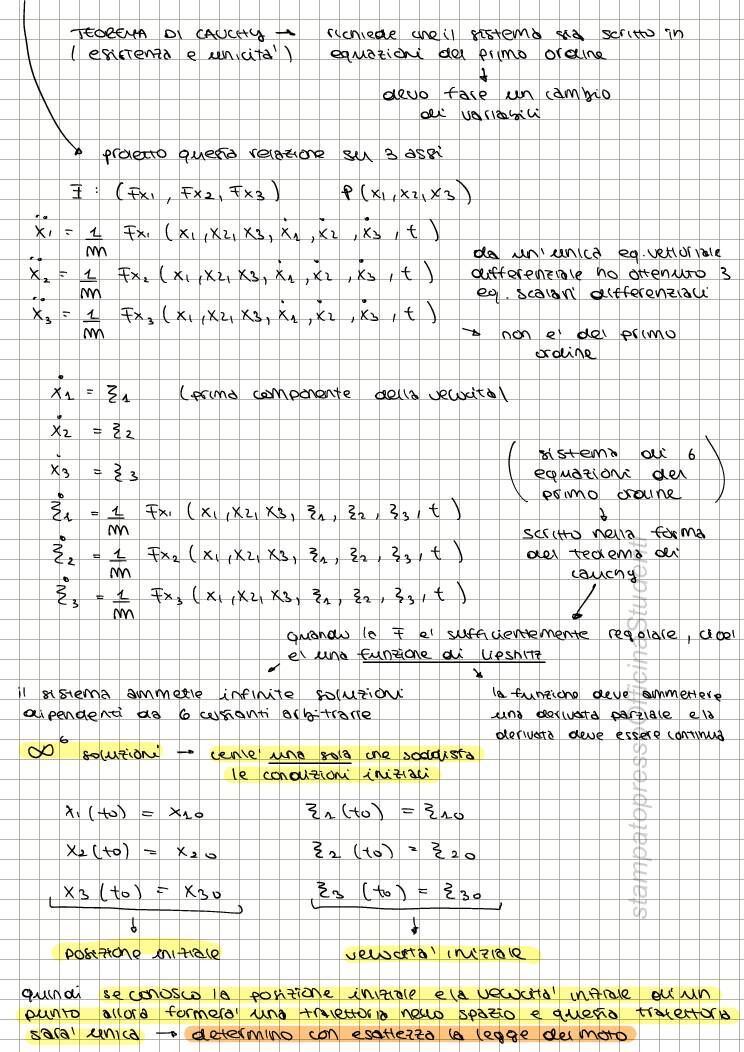 TEOREMA DI CAUCHY → richiede che il sistema sia scritto in
(esistenza e unicita') equazioni del primo ordine
↓
devo fare un cambio
di variabili
proietto questa relazione su 3 assi
F : (Fx1, Fx2, Fx3) P(x1, x2, x3)
ẍ1 = 1/m Fx1 (x1, x2, x3, ẋ1, ẋ2, ẋ3, t)
ẍ2 = 1/m Fx2 (x1, x2, x3, ẋ1, ẋ2, ẋ3, t)
ẍ3 = 1/m Fx3 (x1, x2, x3, ẋ1, ẋ2, ẋ3, t)
da un'unica eq. vettoriale
differenziale ho ottenuto 3
eq. scalari differenziali
→ non e' del primo
ordine
ẋ1 = ξ1 (prima componente della velocita')
ẋ2 = ξ2
ẋ3 = ξ3
ξ̇1 = 1/m Fx1 (x1, x2, x3, ξ1, ξ2, ξ3, t)
ξ̇2 = 1/m Fx2 (x1, x2, x3, ξ1, ξ2, ξ3, t)
ξ̇3 = 1/m Fx3 (x1, x2, x3, ξ1, ξ2, ξ3, t)
(sistema di 6
equazioni del
primo ordine)
↓
scritto nella forma
del teorema di
cauchy
quando la F e' sufficientemente regolare, cioe'
e' una funzione di Lipshitz
il sistema ammette infinite soluzioni
dipendenti da 6 costanti arbitrarie
la funzione deve ammettere
una derivata parziale e la
derivata deve essere continua
∞⁶ soluzioni → ce n'e' una sola che soddisfa
le condizioni iniziali
x1(t0) = x10 ξ1(t0) = ξ10
x2(t0) = x20 ξ2(t0) = ξ20
x3(t0) = x30 ξ3(t0) = ξ30
↓ ↓
posizione iniziale velocita' iniziale
quindi se conosco la posizione iniziale e la velocita' iniziale di un
punto allora formera' una traiettoria nello spazio e questa traiettoria
sara' unica → determino con esattezza la legge del moto
stampatopressoOfficinaStudenti